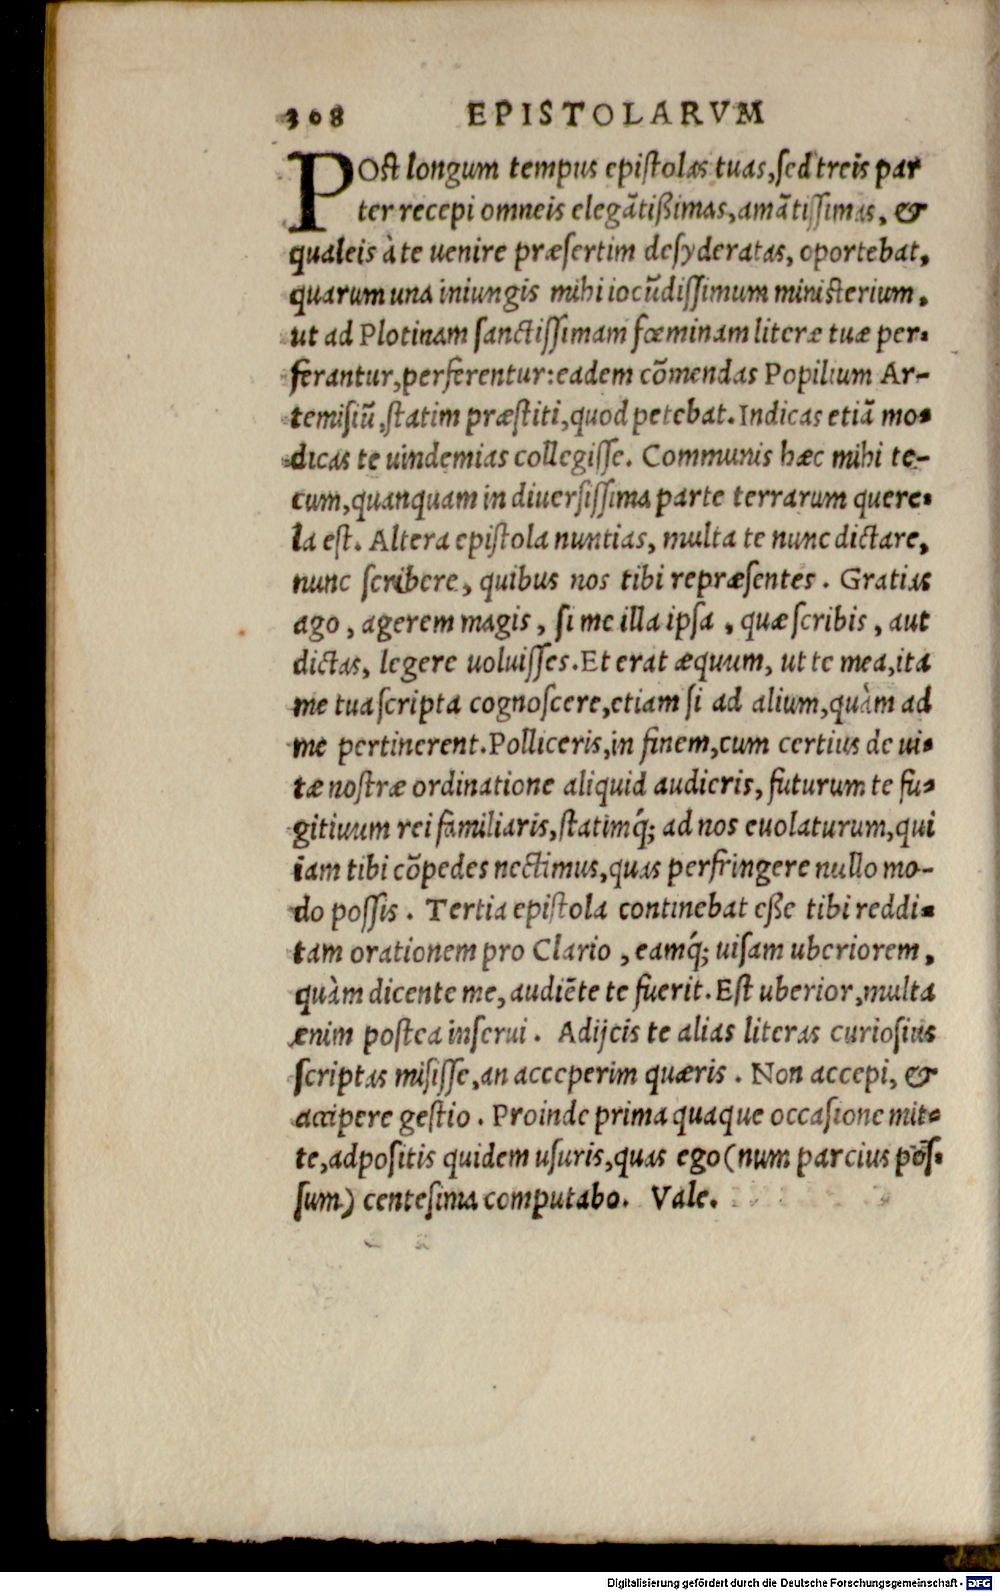 308 EPISTOLARVM
POst longum tempus epistolas tuas, sed treis par
ter recepi omneis elegãtißimas, amãtissimas, &
qualeis à te uenire præsertim desyderatas, oportebat,
quarum una iniungis mihi iocũdissimum ministerium,
ut ad Plotinam sanctissimam fœminam literæ tuæ per-
ferantur, perferentur: eadem cõmendas Popilium Ar-
temisiũ, statim præstiti, quod petebat. Indicas etiã mo-
dicas te uindemias collegisse. Communis hæc mihi te-
cum, quanquam in diuersissima parte terrarum quere-
la est. Altera epistola nuntias, multa te nunc dictare,
nunc scribere, quibus nos tibi repræsentes. Gratias
ago, agerem magis, si me illa ipsa, quæ scribis, aut
dictas, legere uoluisses. Et erat æquum, ut te mea, ita
me tua scripta cognoscere, etiam si ad alium, quàm ad
me pertinerent. Polliceris, in finem, cum certius de ui-
tæ nostræ ordinatione aliquid audieris, futurum te fu-
gitiuum rei familiaris, statimq́; ad nos euolaturum, qui
iam tibi cõpedes nectimus, quas perfringere nullo mo-
do possis. Tertia epistola continebat eße tibi reddi-
tam orationem pro Clario, eamq́; uisam uberiorem,
quàm dicente me, audiẽte te fuerit. Est uberior, multa
enim postea inserui. Adijcis te alias literas curiosius
scriptas misisse, an acceperim quæris. Non accepi, &
accipere gestio. Proinde prima quaque occasione mit-
te, adpositis quidem usuris, quas ego (num parcius pos-
sum) centesima computabo. Vale.
Digitalisierung gefördert durch die Deutsche Forschungsgemeinschaft - DFG